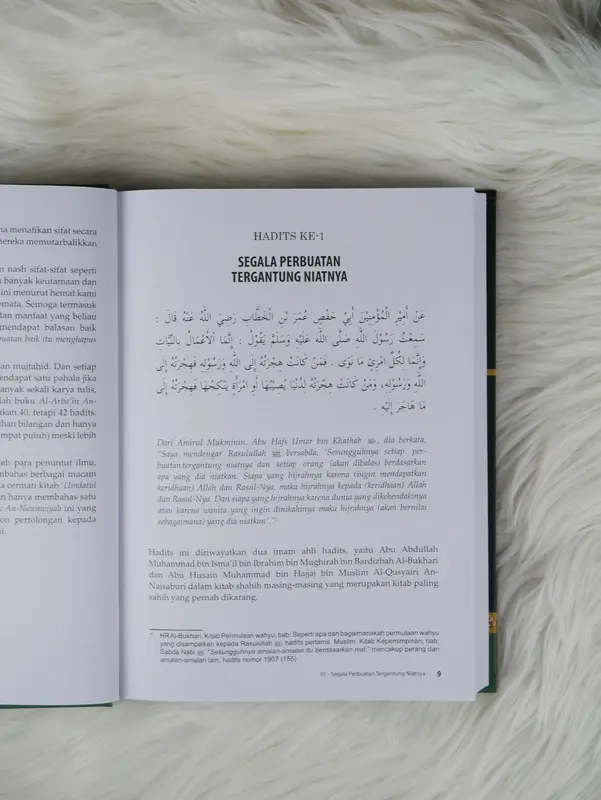 na menafikan sifat secara
mereka memutarbalikkan
n nash sifat-sifat seperti
banyak keutamaan dan
ini menurut hemat kami
mata. Semoga termasuk
dan manfaat yang beliau
mendapat balasan baik
buatan baik itu menghapus
an mujtahid. Dan setiap
endapat satu pahala jika
anyak sekali karya tulis,
lah buku Al-Arba'in An-
kan 40, tetapi 42 hadits.
han bilangan dan hanya
empat puluh) meski lebih
leh para penuntut ilmu,
mbahas berbagai macam
a cermati kitab 'Umdatul
n hanya membahas satu
An-Nawawiyah ini yang
on pertolongan kepada
i.
HADITS KE-1
SEGALA PERBUATAN
TERGANTUNG NIATNYA
عَنْ أَمِيْرِ الْمُؤْمِنِيْنَ أَبِيْ حَفْصٍ عُمَرَ بْنِ الْخَطَّابِ رَضِيَ اللَّهُ عَنْهُ قَالَ :
سَمِعْتُ رَسُوْلَ اللَّهِ صَلَّى اللَّهُ عَلَيْهِ وَسَلَّمَ يَقُوْلُ : إِنَّمَا الْأَعْمَالُ بِالنِّيَّاتِ
وَإِنَّمَا لِكُلِّ امْرِئٍ مَا نَوَى . فَمَنْ كَانَتْ هِجْرَتُهُ إِلَى اللَّهِ وَرَسُوْلِهِ فَهِجْرَتُهُ إِلَى
اللَّهِ وَرَسُوْلِهِ، وَمَنْ كَانَتْ هِجْرَتُهُ لِدُنْيَا يُصِيْبُهَا أَوِ امْرَأَةٍ يَنْكِحُهَا فَهِجْرَتُهُ إِلَى
مَا هَاجَرَ إِلَيْهِ .
Dari Amirul Mukminin, Abu Hafs Umar bin Khathab ؓ, dia berkata,
"Saya mendengar Rasulullah ﷺ bersabda, 'Sesungguhnya setiap per-
buatan tergantung niatnya dan setiap orang (akan dibalas) berdasarkan
apa yang dia niatkan. Siapa yang hijrahnya karena (ingin mendapatkan
keridhaan) Allah dan Rasul-Nya, maka hijrahnya kepada (keridhaan) Allah
dan Rasul-Nya. Dan siapa yang hijrahnya karena dunia yang dikehendakinya
atau karena wanita yang ingin dinikahinya maka hijrahnya (akan bernilai
sebagaimana) yang dia niatkan'."¹
Hadits ini diriwayatkan dua imam ahli hadits, yaitu Abu Abdullah
Muhammad bin Isma'il bin Ibrahim bin Mughirah bin Bardizbah Al-Bukhari
dan Abu Husain Muhammad bin Hajjaj bin Muslim Al-Qusyairi An-
Naisaburi dalam kitab shahih masing-masing yang merupakan kitab paling
sahih yang pernah dikarang.
1 HR Al-Bukhari, Kitab Permulaan wahyu, bab: Seperti apa dan bagaimanakah permulaan wahyu
yang disampaikan kepada Rasulullah ﷺ: hadits pertama. Muslim, Kitab Kepemimpinan, bab:
Sabda Nabi ﷺ: "Sesungguhnya amalan-amalan itu berdasarkan niat," mencakup perang dan
amalan-amalan lain, hadits nomor 1907 (155)
01 - Segala Perbuatan Tergantung Niatnya 9